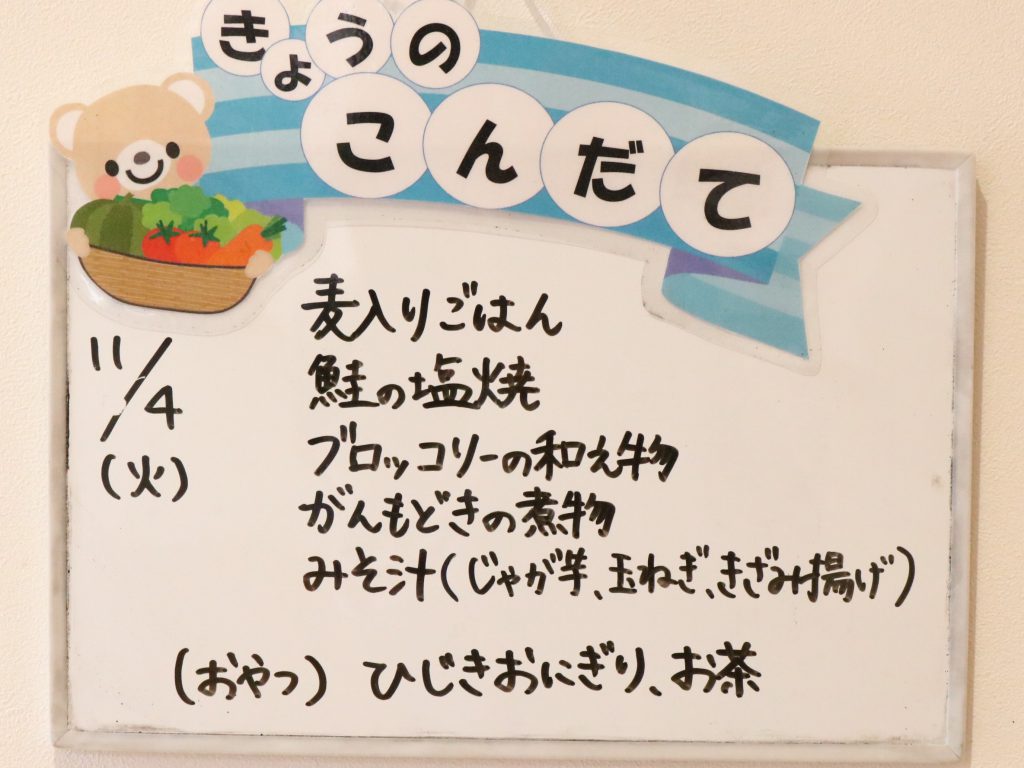 きょうの
こんだて
11/4
(火)
麦入りごはん
鮭の塩焼
ブロッコリーの和え物
がんもどきの煮物
みそ汁(じゃが芋、玉ねぎ、きざみ揚げ)
(おやつ) ひじきおにぎり、お茶